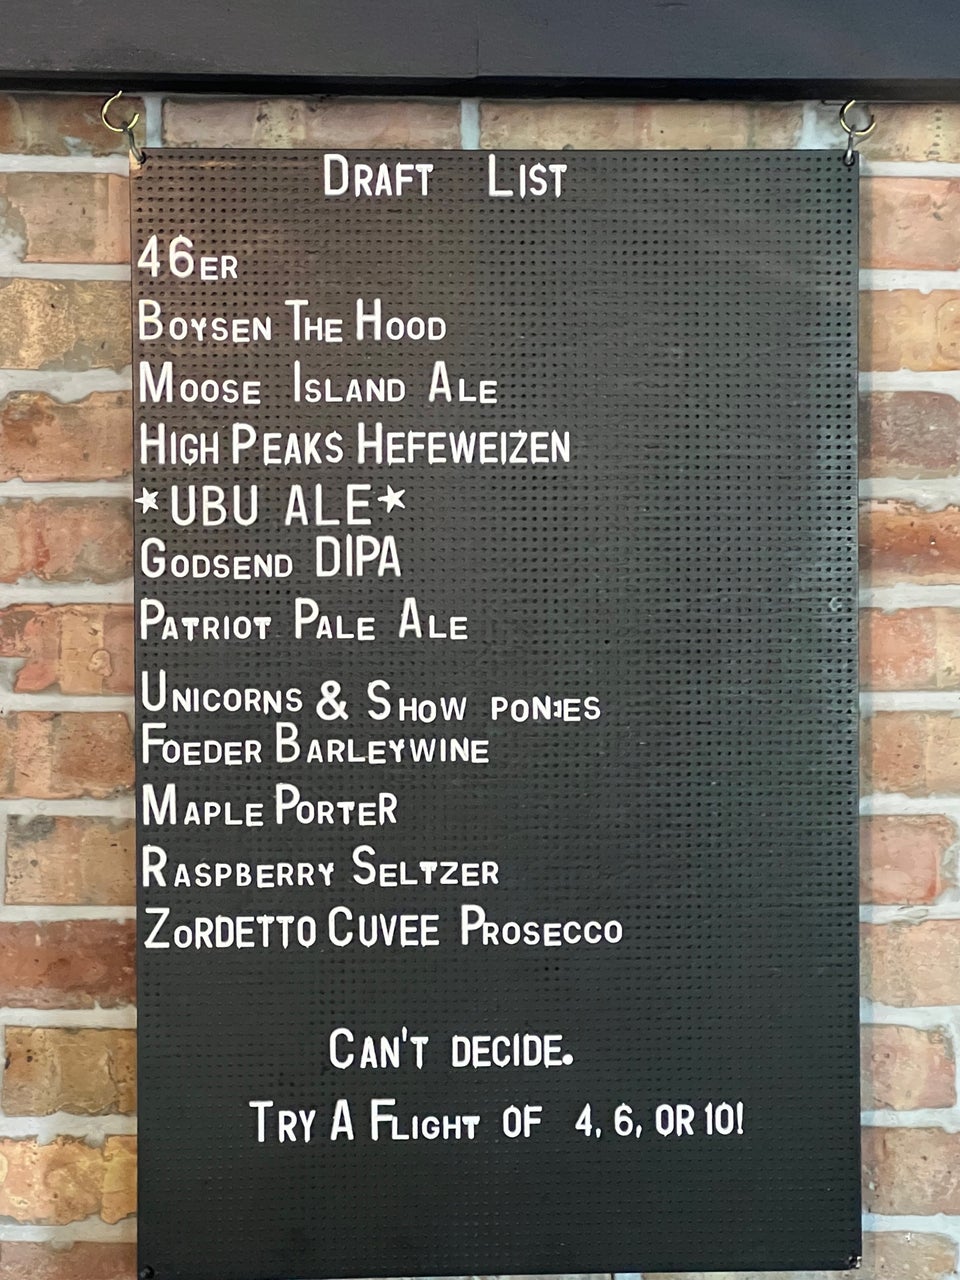 Draft List
46er
Boysen The Hood
Moose Island Ale
High Peaks Hefeweizen
*UBU ALE*
Godsend DIPA
Patriot Pale Ale
Unicorns & Show Ponies
Foeder Barleywine
Maple Porter
Raspberry Seltzer
Zordetto Cuvee Prosecco
Can't decide.
Try A Flight of 4, 6, or 10!